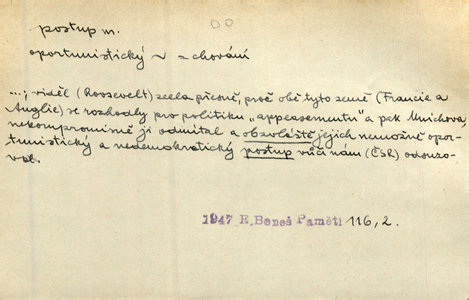 postup m.
oportunistický ~ = chování
...; viděl (Roosevelt) zcela přesně, proč obě tyto země (Francie a
Anglie) se rozhodly pro politiku „appeasementu" a pak Mnichova,
nekompromisně ji odmítal a obzvláště jejich nemožně opor-
tunistický a nedemokratický postup vůči nám (ČSR) odsuzo-
val.
1947 E. Beneš Paměti 116, 2.